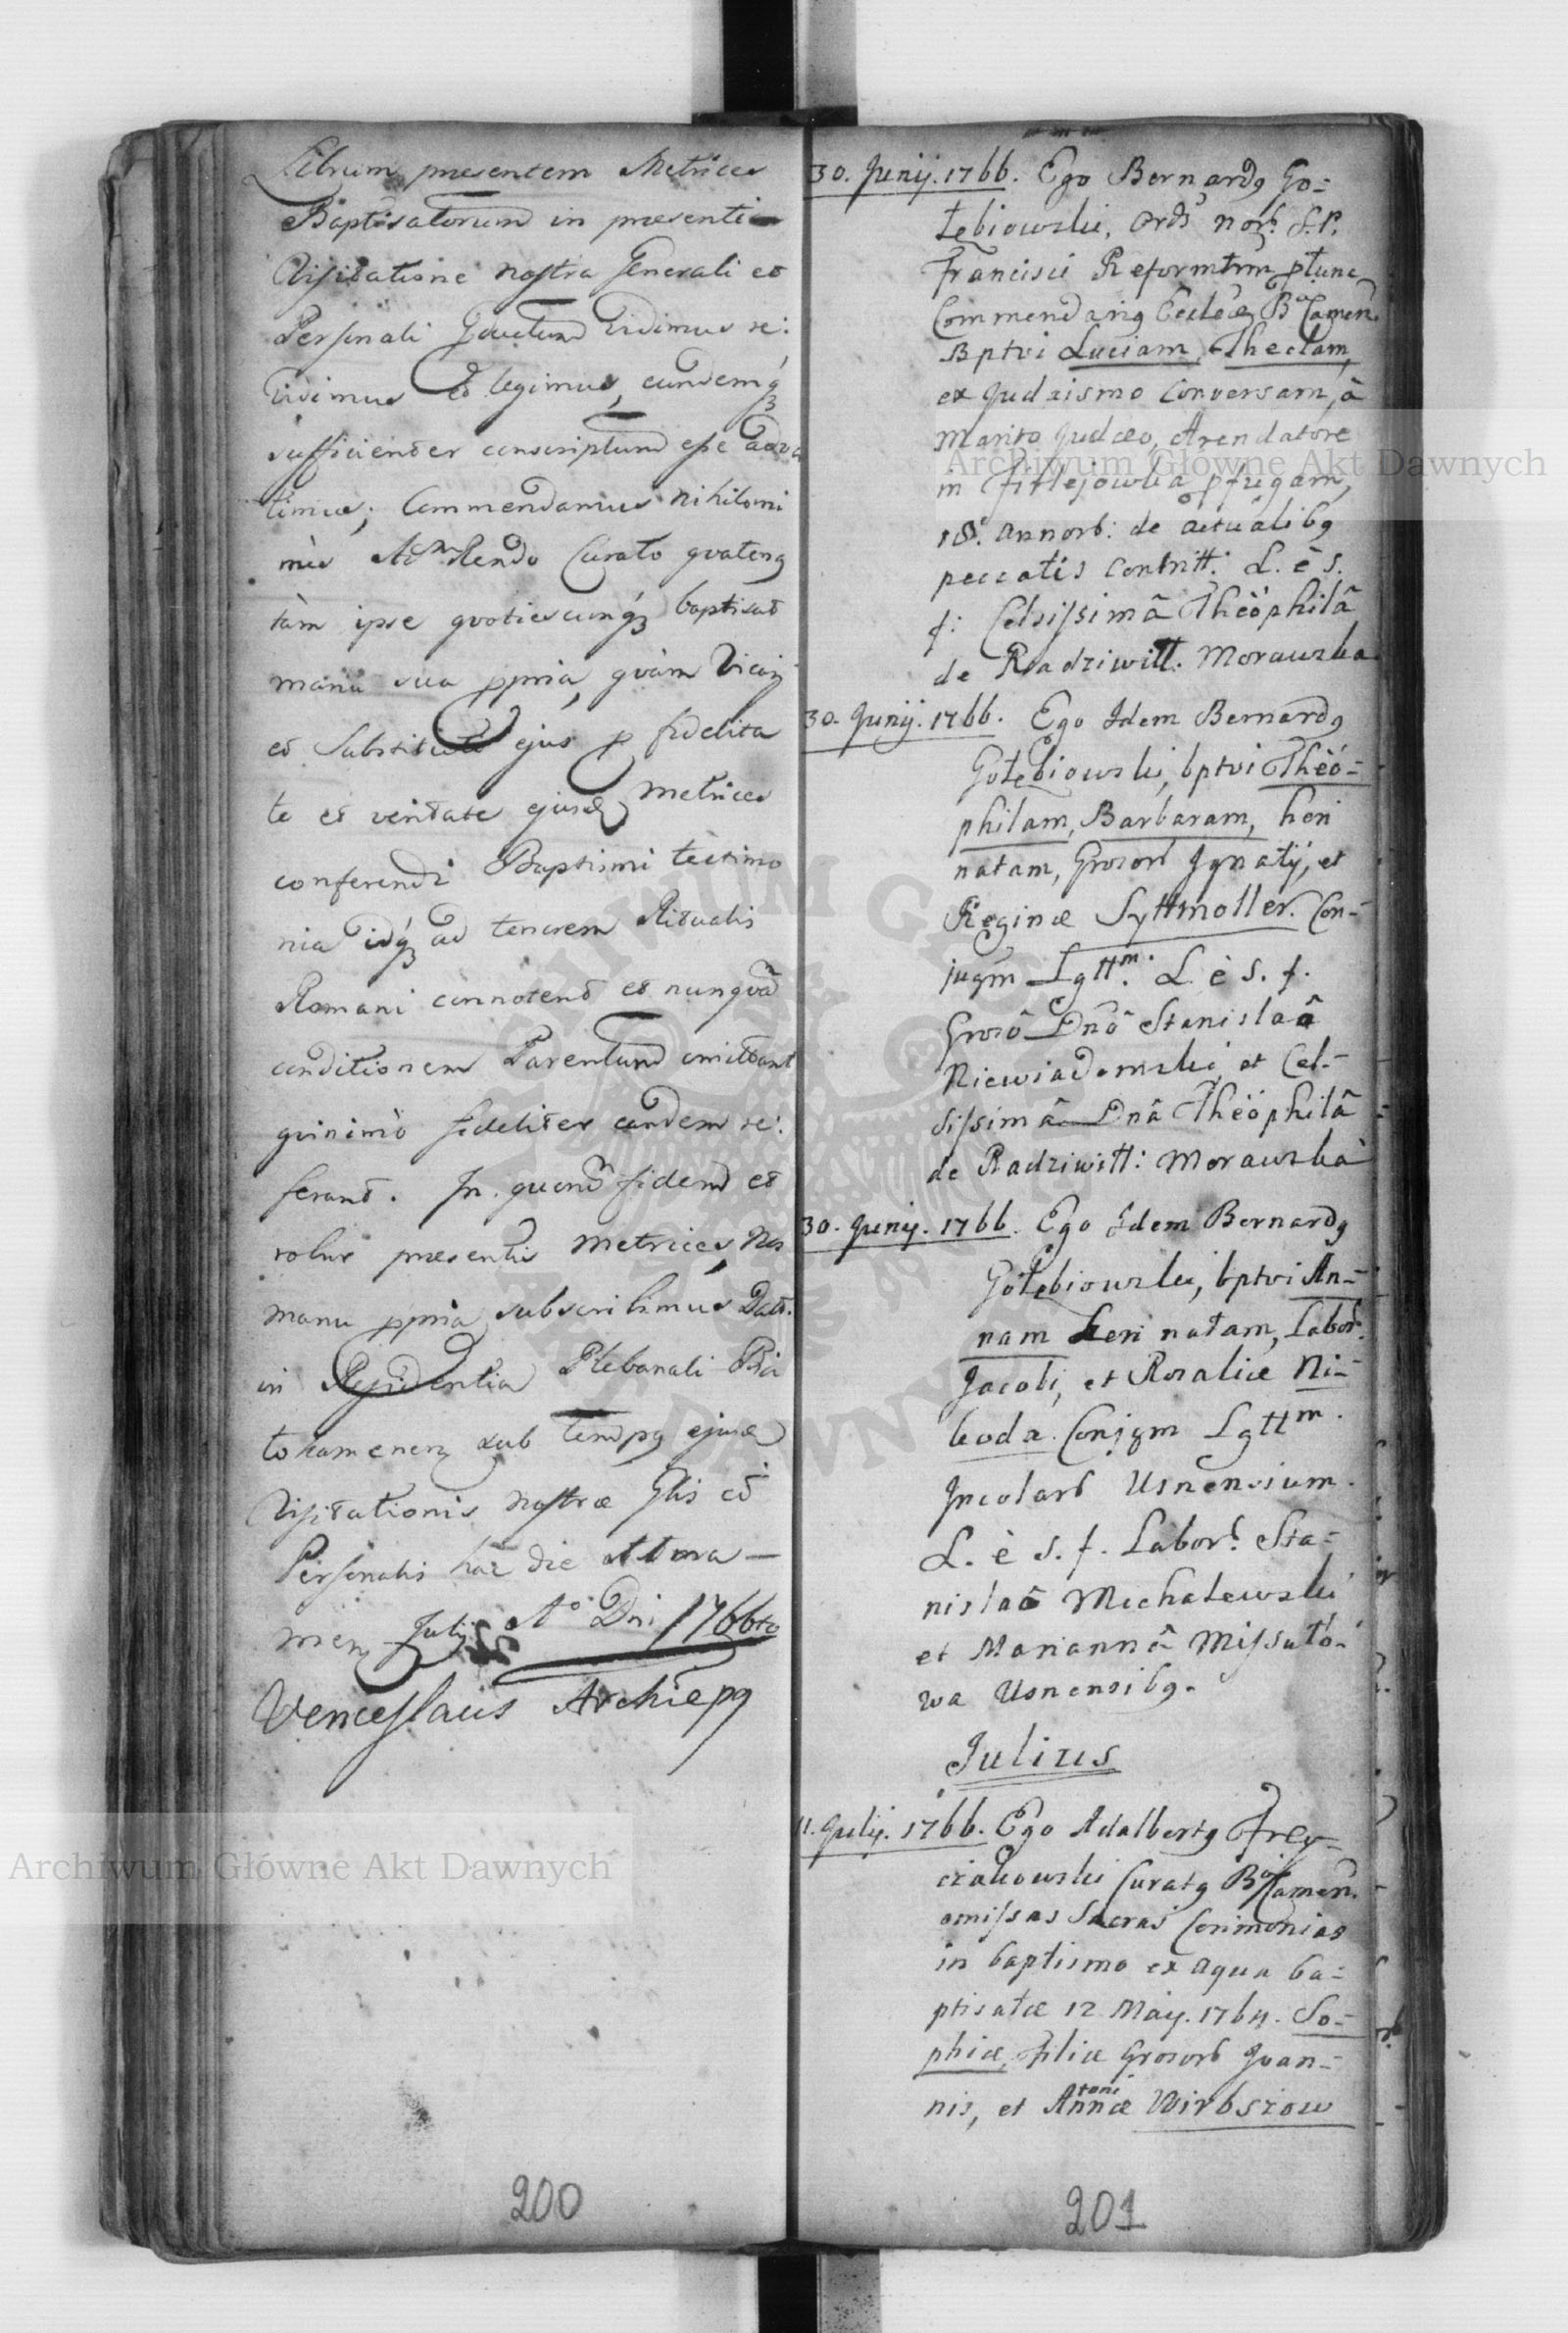 Librum presentem Metrices
Baptisatorum in presenti
Visitatione nostra Generali et
Personali Jductum vidimus re:
vidimus et legimus, eundemq3
sufficienter conscriptum esse adver
timus; Commendamus nihilomi
nus Adm Rendo Curato quatenq
tam ipse quotiescunq3 baptisat
manu sua ppria, quam Vicarij
et Substituti ejus p fidelita
te et veritate ejusd Metrices
conferendi Baptismi testimo
nia idq3 ad tenorem Ritualis
Romani connotent et nunquā
conditionem Parentum omittant
quinimo fideliter eandem re:
ferant. In quorū fidem et
robur presentis Metrices, Nos
manu ppria subscribimus Datt.
in Residentia Plebanali Bia
tokamenen sub tempq ejusd
Visitationis nostræ Glis et
Personalis hac die
mens Julij Ao Dni 1766to
Venceslaus Archiepq
200
30. Junij. 1766. Ego Bernardq Go=
łębiowski, Ords nor: S. P.
Francisci Reformtrm ptunc
Commendariq Ecclæ Ba Camen.
Bptvi Luciam, Theclam,
ex Judaismo conversam, à
Marito Judæo, Arendatore
in Firlejowka pfugam,
18. annorb: de actualibq
peccatis contritt: L. è s.
f: Celsissimâ Thèophilâ
de Radziwiłł. Morawska.
30. Junij. 1766. Ego Idem Bernardq
Gołębiowski, bptvi Thèo=
philam, Barbaram, heri
natam, Grosorb Jgnatij, et
Reginæ Syttmoller. Con=
jugm Lgttm. L. è s. f.
Grosô Dnô Stanislaô
Niewiadomski, et Cel=
sissimâ Dnâ Thèophilâ
de Radziwiłł: Morawskà
30. Junij. 1766. Ego Idem Bernardq
Gołębiowski, bptvi An=
nam heri natam, Labor.
Jacobi, et Rosaliæ Ni=
koda. Conjgm Lgttm.
Jncolarb Usnensium.
L. è s. f. Labor: Sta=
nislaô Michalewski
et Mariannâ Missato=
wa Usnensibq.
Julius
11. Julij. 1766. Ego Adalbertq Frey=
czakowski Curatq Bia Camen.
omissas Sacras Cerimonias
in baptismo ex aqua ba=
ptisatæ 12 Maij. 1764. So=
phiæ, Filiæ Grosorb Joan=
nis, et Annæ Wirbszow
toni
201
Archiwum Główne Akt Dawnych
Archiwum Główne Akt Dawnych
ARCHIWUM GŁÓWNE
AKT DAWNYCH